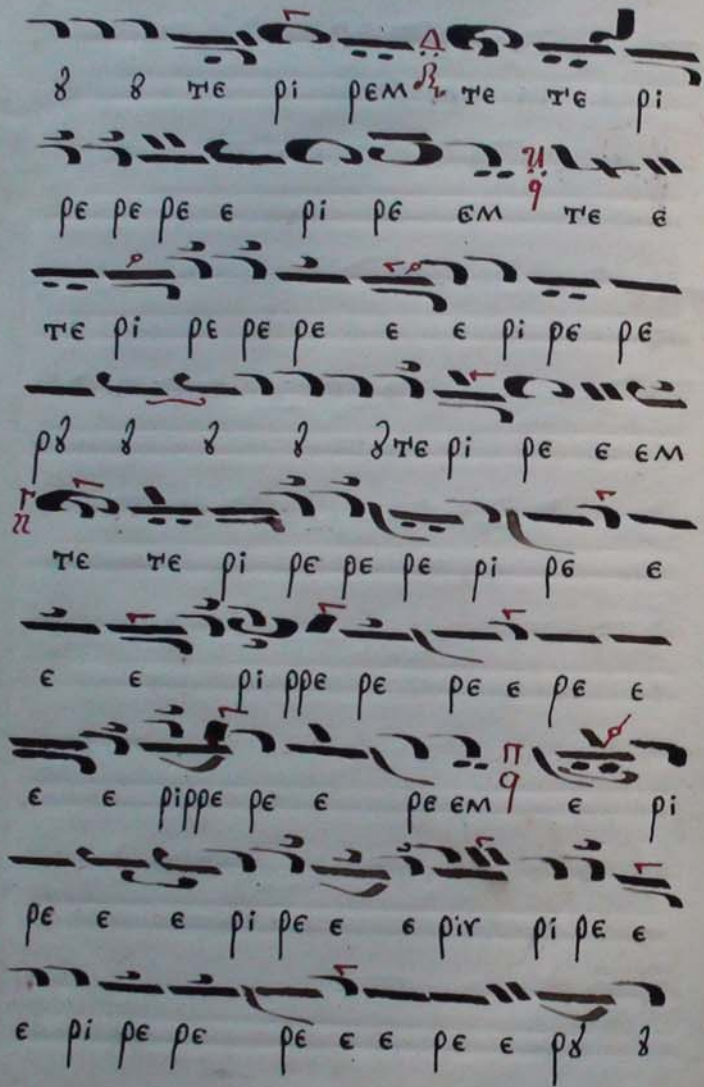 ȣ ȣ τε ρι ρεμ τε τε ρι
ρε ρε ρε ε ρι ρε εμ τε ε
τε ρι ρε ρε ρε ε ε ρι ρε ρε
ρȣ ȣ ȣ ȣ ȣ τε ρι ρε ε εμ
τε τε ρι ρε ρε ρε ρι ρε ε
ε ε ρι ρρε ρε ρε ε ρε ε
ε ε ριρρε ρε ε ρε εμ ε ρι
ρε ε ε ρι ρε ε ε ριr ρι ρε ε
ε ρι ρε ρε ρε ε ε ρε ε ρȣ ȣ